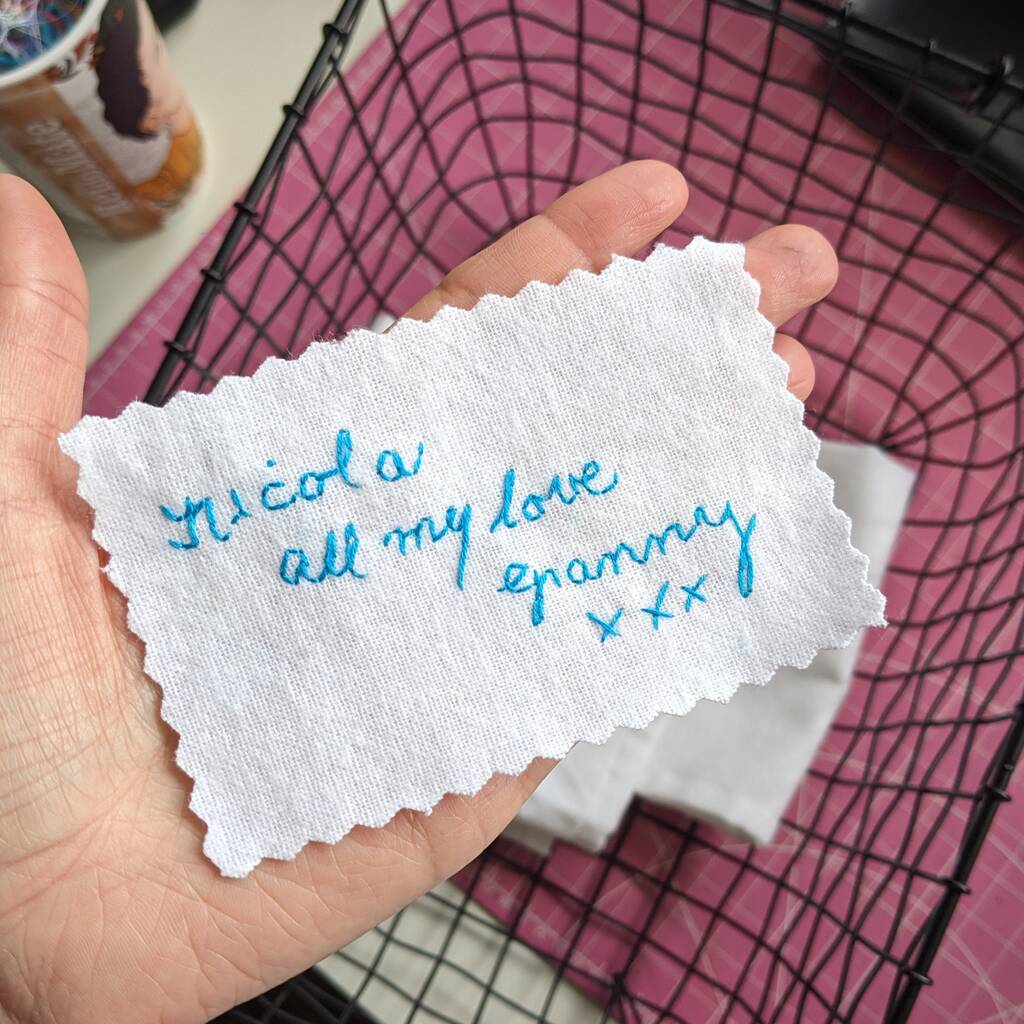 Nicola
all my love
granny
x x x